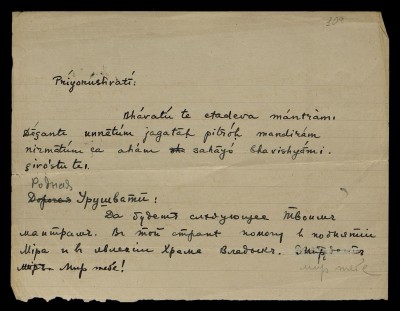 304
Priyorushvati:
Bhávatu te etadeva mántram.
unnetúm jagatáh pitróh mandirám
nirmatúm ća ahám ~~sha~~ saháyó bhavishyómi.
śivóstu te.
Родная
~~Дорогая~~ Урушвати:
Да будетъ слѣдующее Твоимъ
мантрамъ. Въ той странѣ помогу въ поднятiи
Мiра и въ явленiи Храма Владыкъ.
Миръ тебѣ!
миръ тебѣ